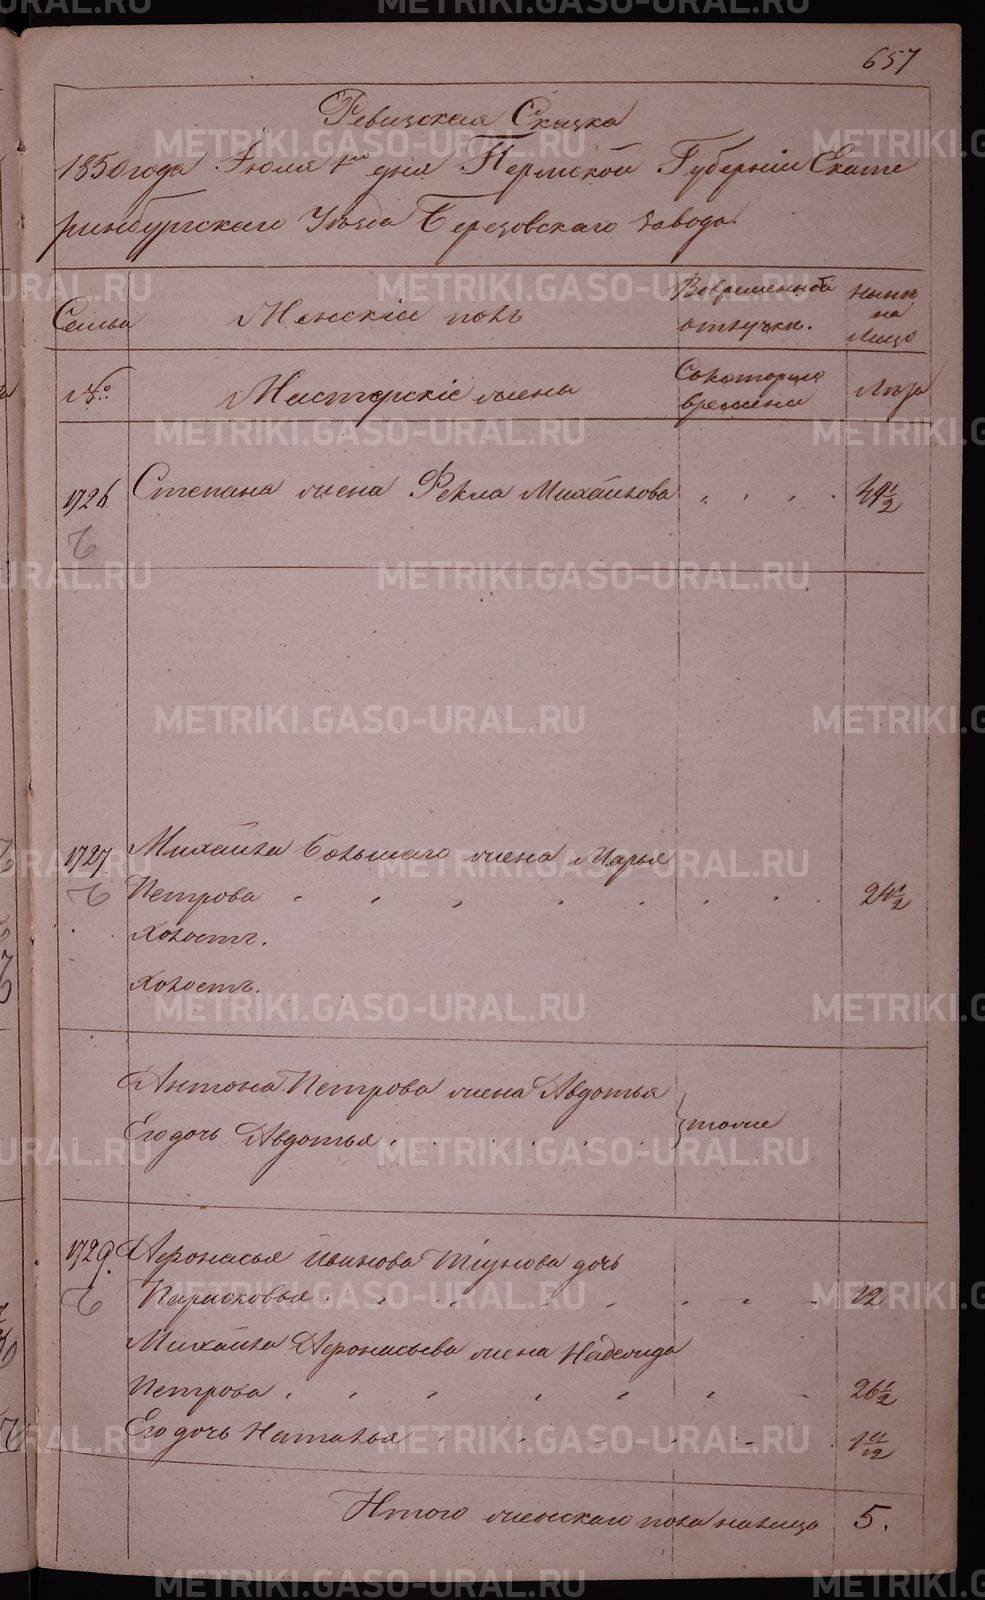 657
Ревизская Сказка
1850 года Июля 1го дня Пермской Губернии Екате
ринбургскаго Уѣзда Березовскаго завода.
Семьи
Женскій полъ
Во временной
отлучки.
Нынѣ
на
лицо
№
Мастерскіе жены
Съ котораго
времени
Лѣта
1726
Степана жена Фекла Михайлова
1727
Михайла Большаго жена Марья
Петрова
24 1/2
Холостъ.
Холостъ.
Антона Петрова жена Авдотья
Его дочь Авдотья
тоже
1729.
Афонасья Иванова Тіунова дочь
Парасковья
12
Михайла Афонасьева жена Надежда
Петрова
26 1/2
Его дочь Наталья
1 11/12
Итого женскаго пола налицо
5.
METRIKI.GASO-URAL.RU